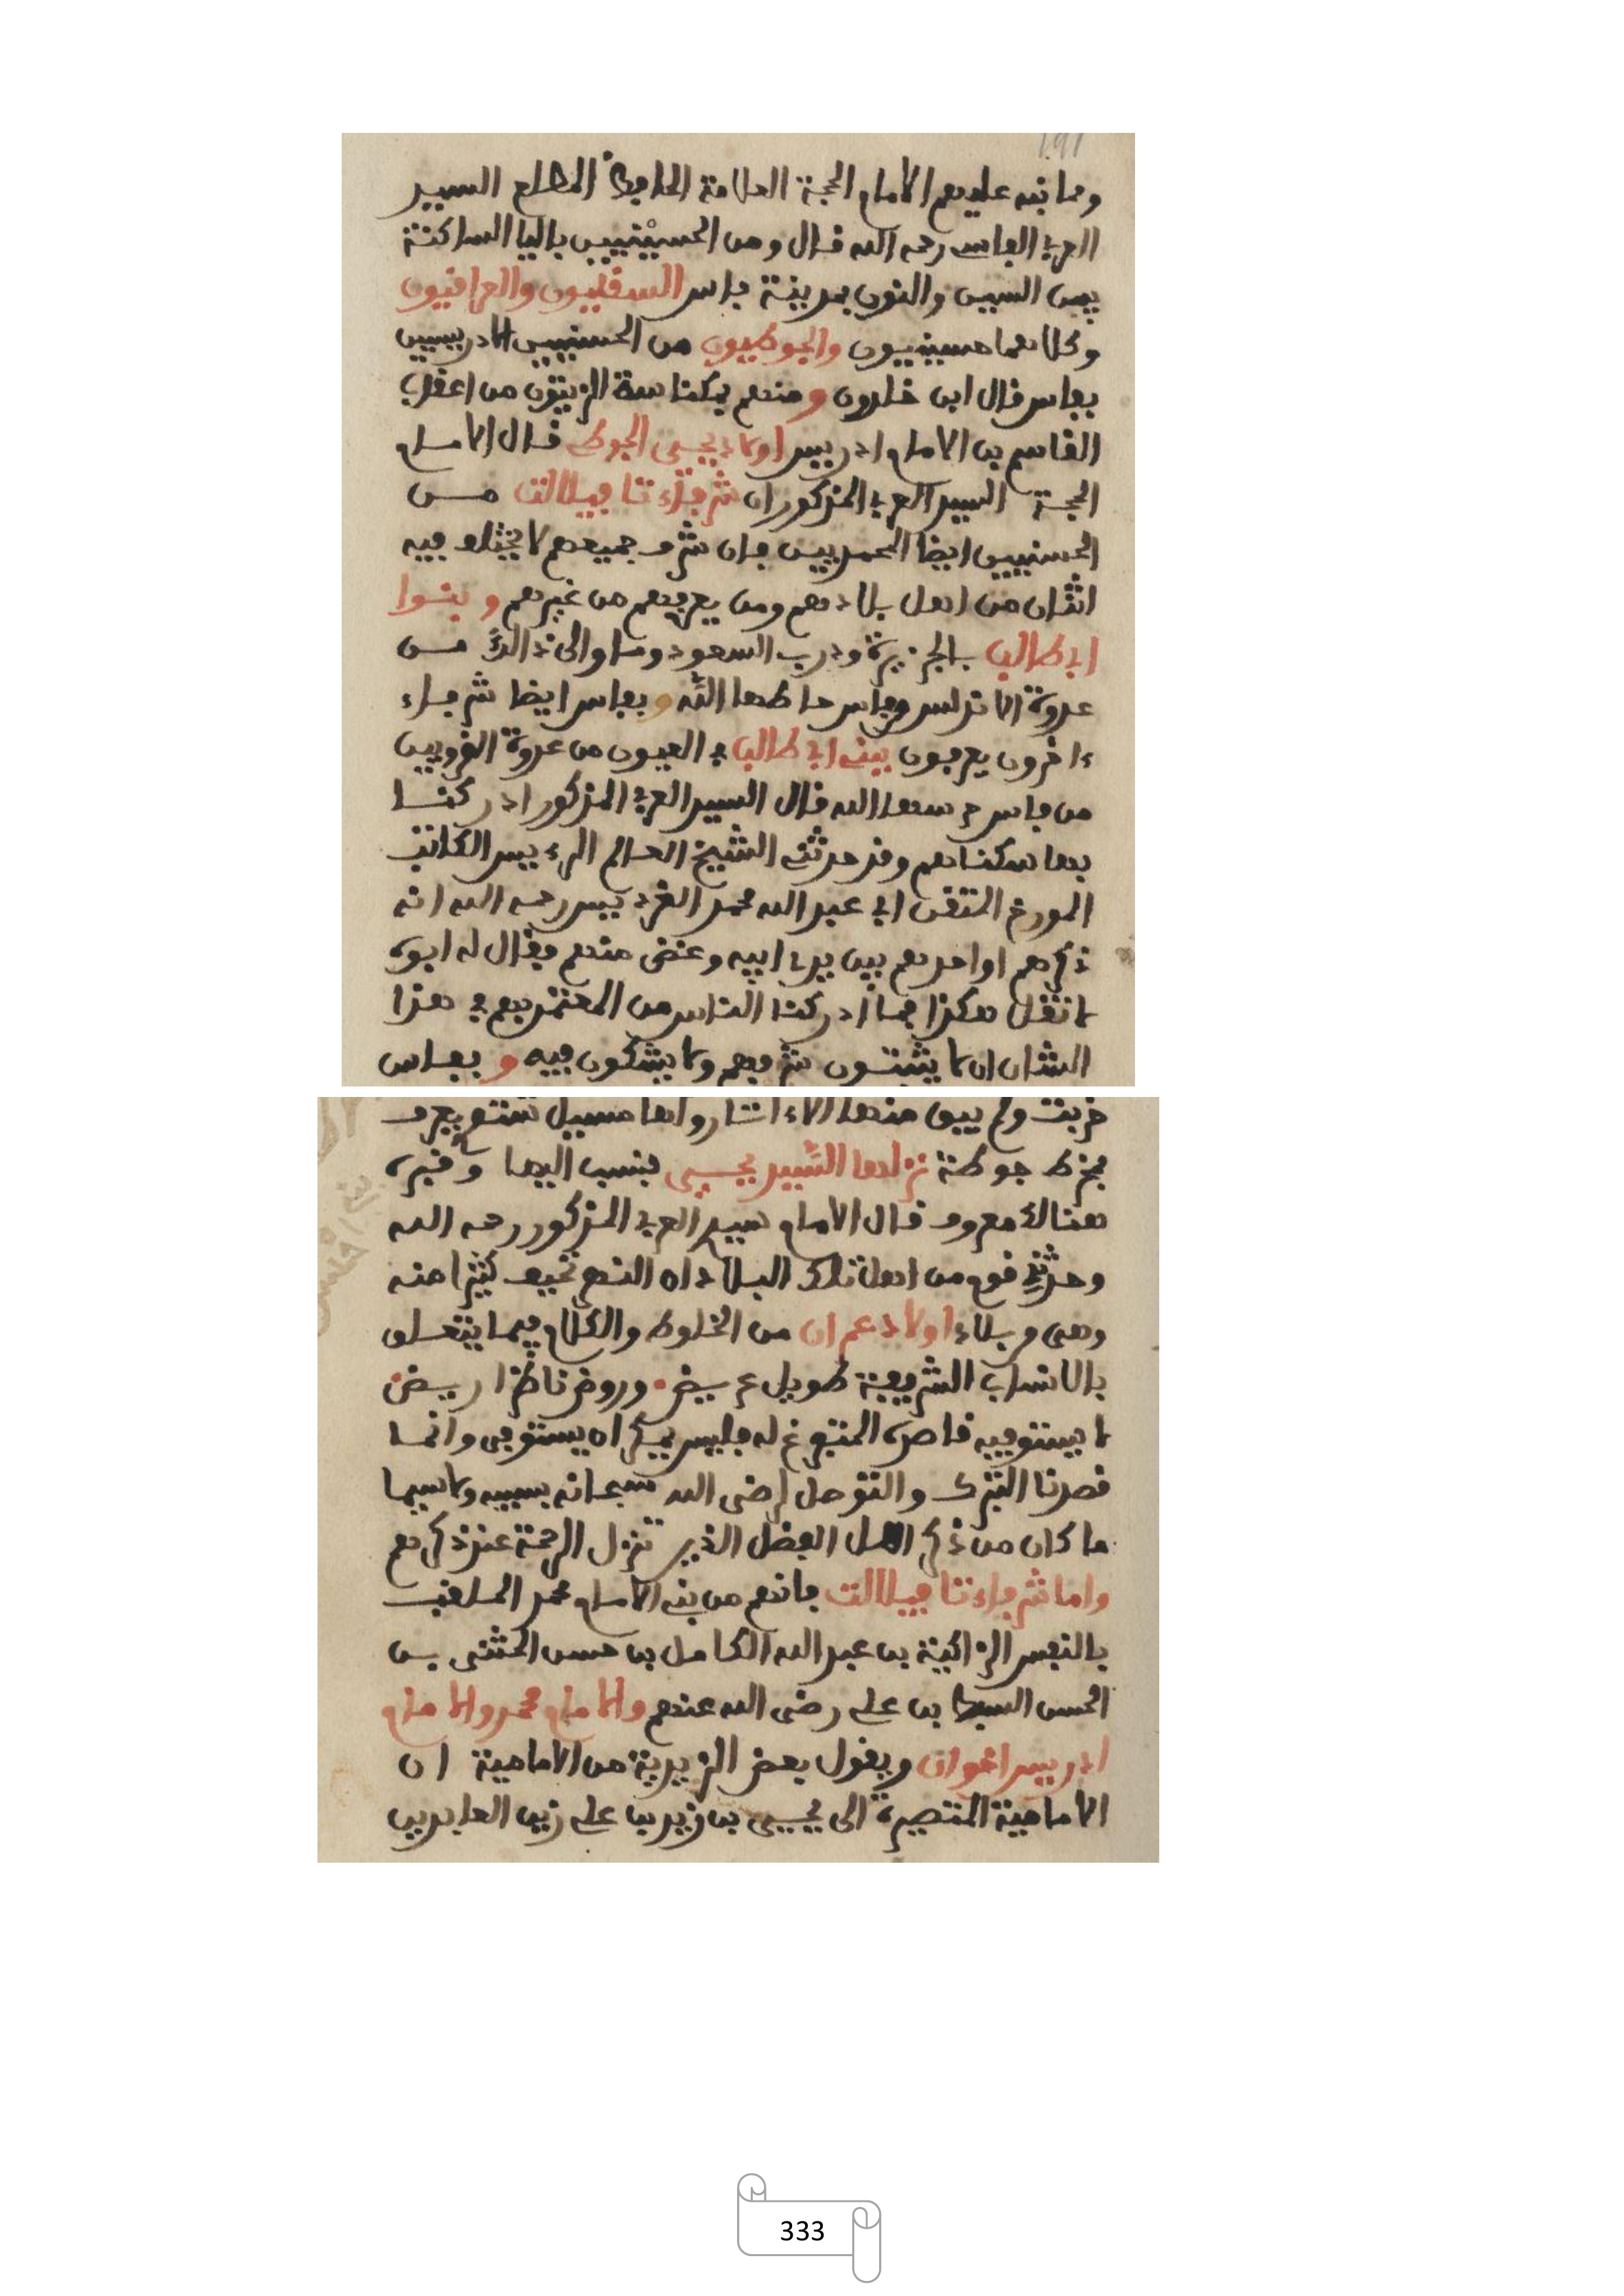 ومما نبه عليهم الامام الحجة العلامة الحافظ المطلع السيد
العربي الفاسي رحمه الله قال ومن الحسينيين باليا الساكنة
بين السين والنون بمدينة فاس السقليون والعراقيون
وكلاهما حسينيون والجوطيون من الحسنيين الادريسيين
بفاس قال ابن خلدون ومنهم بمكناسة الزيتون من اعقاب
القاسم بن الامام ادريس اولاد يحيى الجوطي قال الامام
الحجة السيد العربي المذكور ان شرفاء تافيلالت مـن
الحسنيين ايضا المحمديين فان شرف جميعهم لا يختلف فيه
اثنان من اهل بلادهم ومن يعرفهم من غيرهم وبنوا
ابي طالب بالجزيرة ودرب السعود وما والى ذالك مـن
عدوة الاندلس وفاس حاطها الله وبفاس ايضا شرفاء
ءاخرون يعرفون ببني ابي طالب في العيون من عدوة القرويين
من فاس حرسها الله قال السيد العربي المذكور ادركنا
بها سكناهم وقد حدثني الشيخ العالم الرءيس الكاتب
المورخ المتقن ابي عبد الله محمد الغرديس رحمه الله انه
ذكرهم او احدهم بين يدي ابيه وغض منهم فقال له ابوه
لا تقل هكذا فما ادركنا الناس من المعتمد بهم في هذا
الشان الا يثبتون شرفهم ولا يشكون فيه وبفاس
خربت ولم يبق منها الا ءاثار واها مسيل شتو يعرف
بمخط جوطة نزلها السيد يحيى فنسب اليها وقبره
هنالك معروف قال الامام سيد العربي المذكور رحمه الله
وحدثني قوم من اهل تلك البلاد ان النهر تحيف كثيرا منه
وهي وبلاء اولاد عمران من الخلوط والكلام فيما يتعلق
بالانساب الشريفة طويل عريض وروض ناظرا ريض
لا يستوفيه قاصره المتفرغ له فليس يمكن ان يستوفى وانما
قصدنا التبرك والتوصل لرضى الله سبحانه بسببه ولا سيما
ما كان من ذكر اهل الفضل الذين تنزل الرحمة عند ذكرهم
واما شرفاء تافيلالت فانهم من بني الامام محمد الملقب
بالنفس الزاكية بن عبد الله الكامل بن حسن المثنى بـن
الحسن السبط بن علي رضى الله عنهم والامام محمد والامام
ادريس اخوان ويقول بعض الزيدية من الامامية ان
الامامية المتصيرة الى يحيى بن زيد بن علي زين العابدين
333